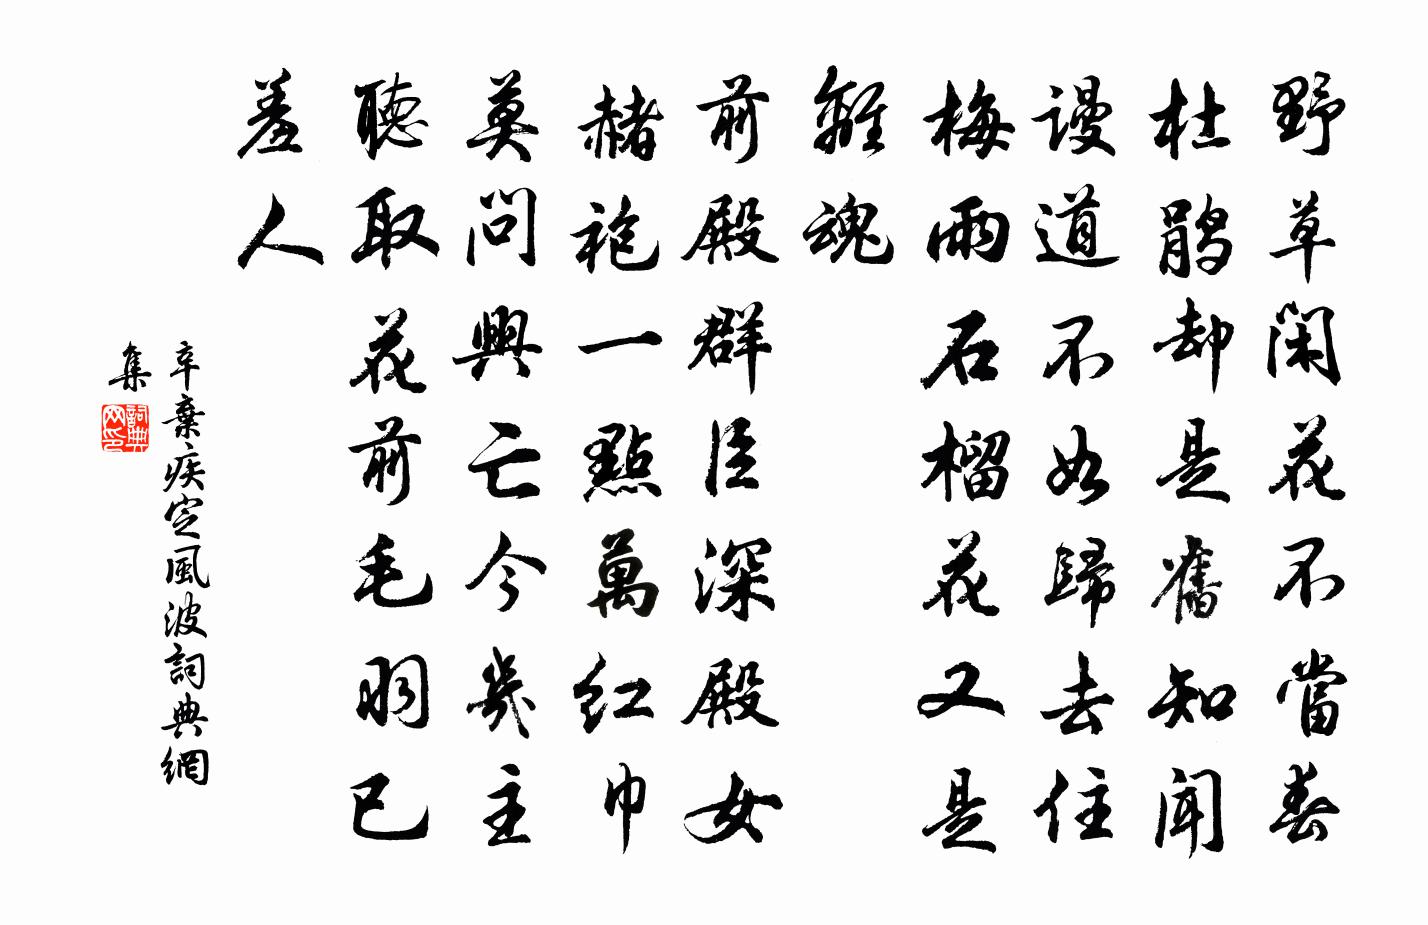 野草閑花不當春
杜鵑却是舊知聞
謾道不如歸去住
梅雨石榴花又是
離魂
前殿群臣深殿女
赭袍一點萬紅巾
莫問興亡今幾主
聽取花前毛羽已
羞人
辛棄疾定風波詞典網
集
詞典網印